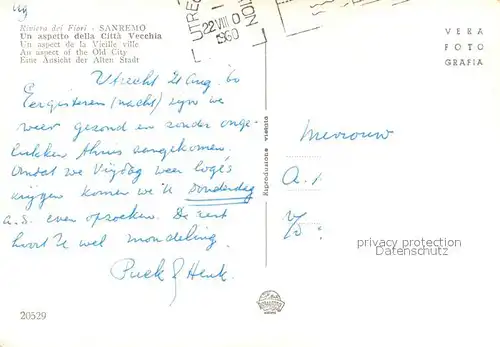 Riviera dei Fiori - SANREMO
Un aspetto della Città Vecchia
Un aspect de la Vieille ville
An aspect of the Old City
Eine Ansicht der Alten Stadt
UTREC
22 VIII 0
1960
VERA
FOTO
GRAFIA
Utrecht 21 Aug. 60
Eergisteren (nacht) zijn we
weer gezond en zonder onge-
lukken thuis aangekomen.
Omdat we Vrijdag weer logé's
krijgen komen we U Donderdag
a.s. even opzoeken. De rest
hoort U wel mondeling.
Puck & Henk.
Riproduzione vietata
Mevrouw
privacy protection
Datenschutz
20529